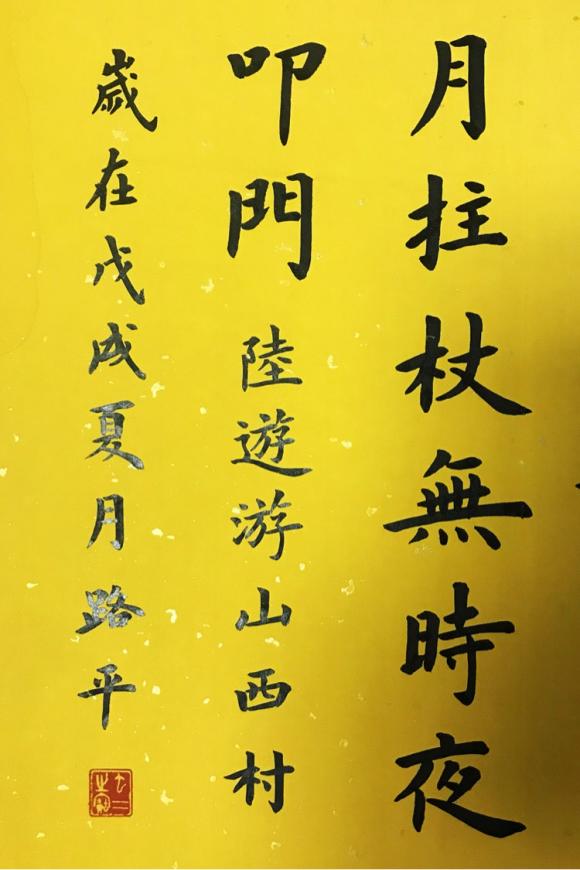 月拄杖無時夜
叩門 陸遊游山西村
歲在戊戌夏月路平